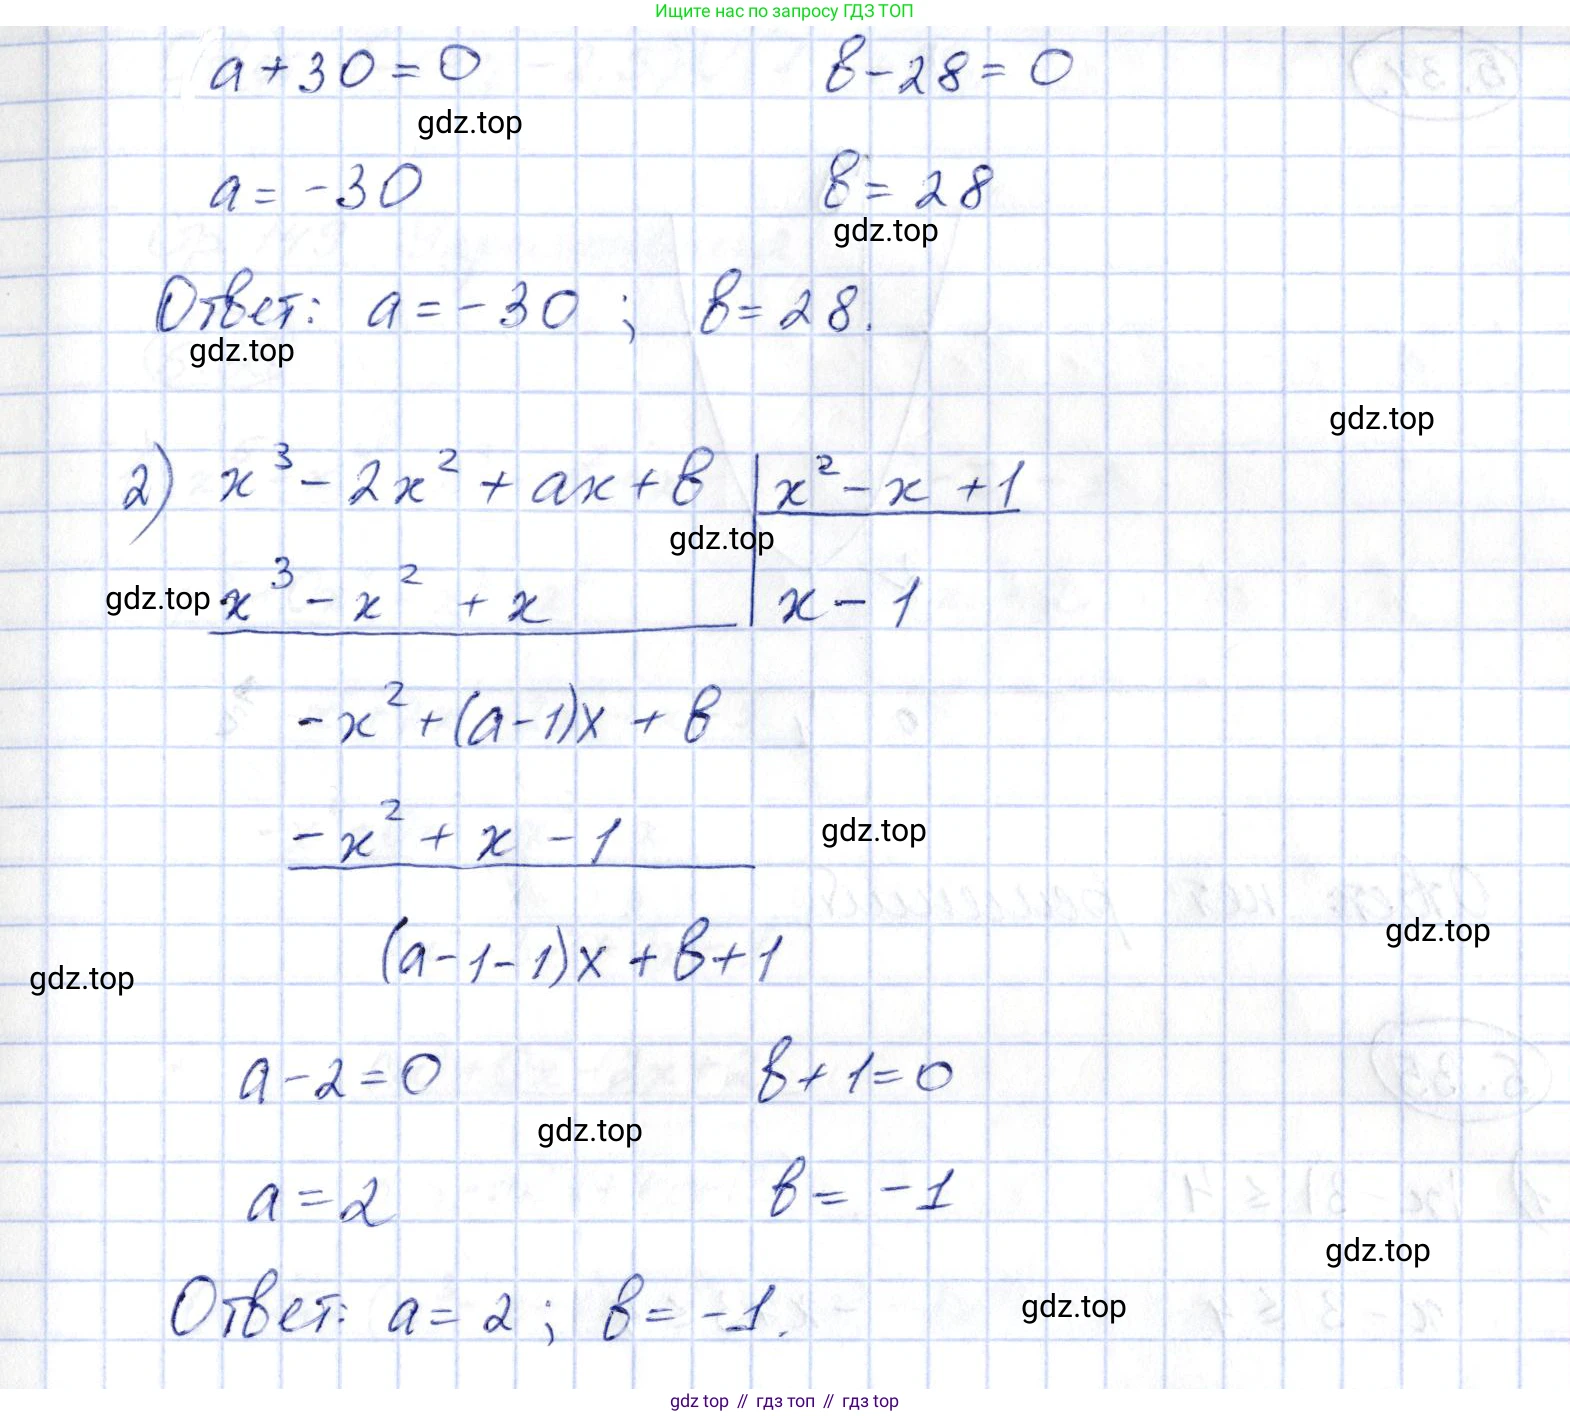 Ищите нас по запросу ГДЗ ТОП
a + 30 = 0 в - 28 = 0
gdz.top
a = -30 в = 28
gdz.top
Ответ: a = -30 ; в = 28.
gdz.top
gdz.top
2) x³ - 2x² + ax + в | x² - x + 1
gdz.top
gdz.top x³ - x² + x | x - 1
-x² + (a-1)x + в
-x² + x - 1
gdz.top
(a-1-1)x + в + 1
gdz.top
gdz.top
a - 2 = 0 в + 1 = 0
gdz.top
a = 2 в = -1
gdz.top
Ответ: a = 2 ; в = -1.
gdz.top
gdz top // гдз топ // гдз top